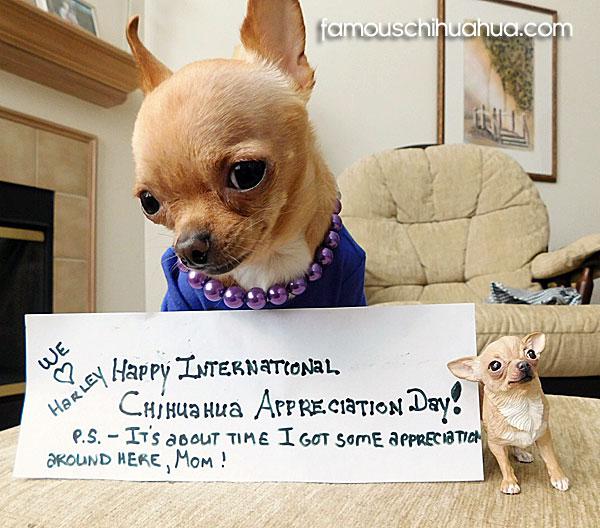 famouschihuahua.com
WE
♡
HARLEY
HAPPY INTERNATIONAL
CHIHUAHUA APPRECIATION DAY!
P.S. - IT'S ABOUT TIME I GOT SOME APPRECIATION
AROUND HERE, MOM!